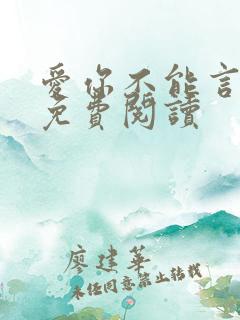 愛你不能言
免費閱讀
廖建華
未經同意禁止轉載